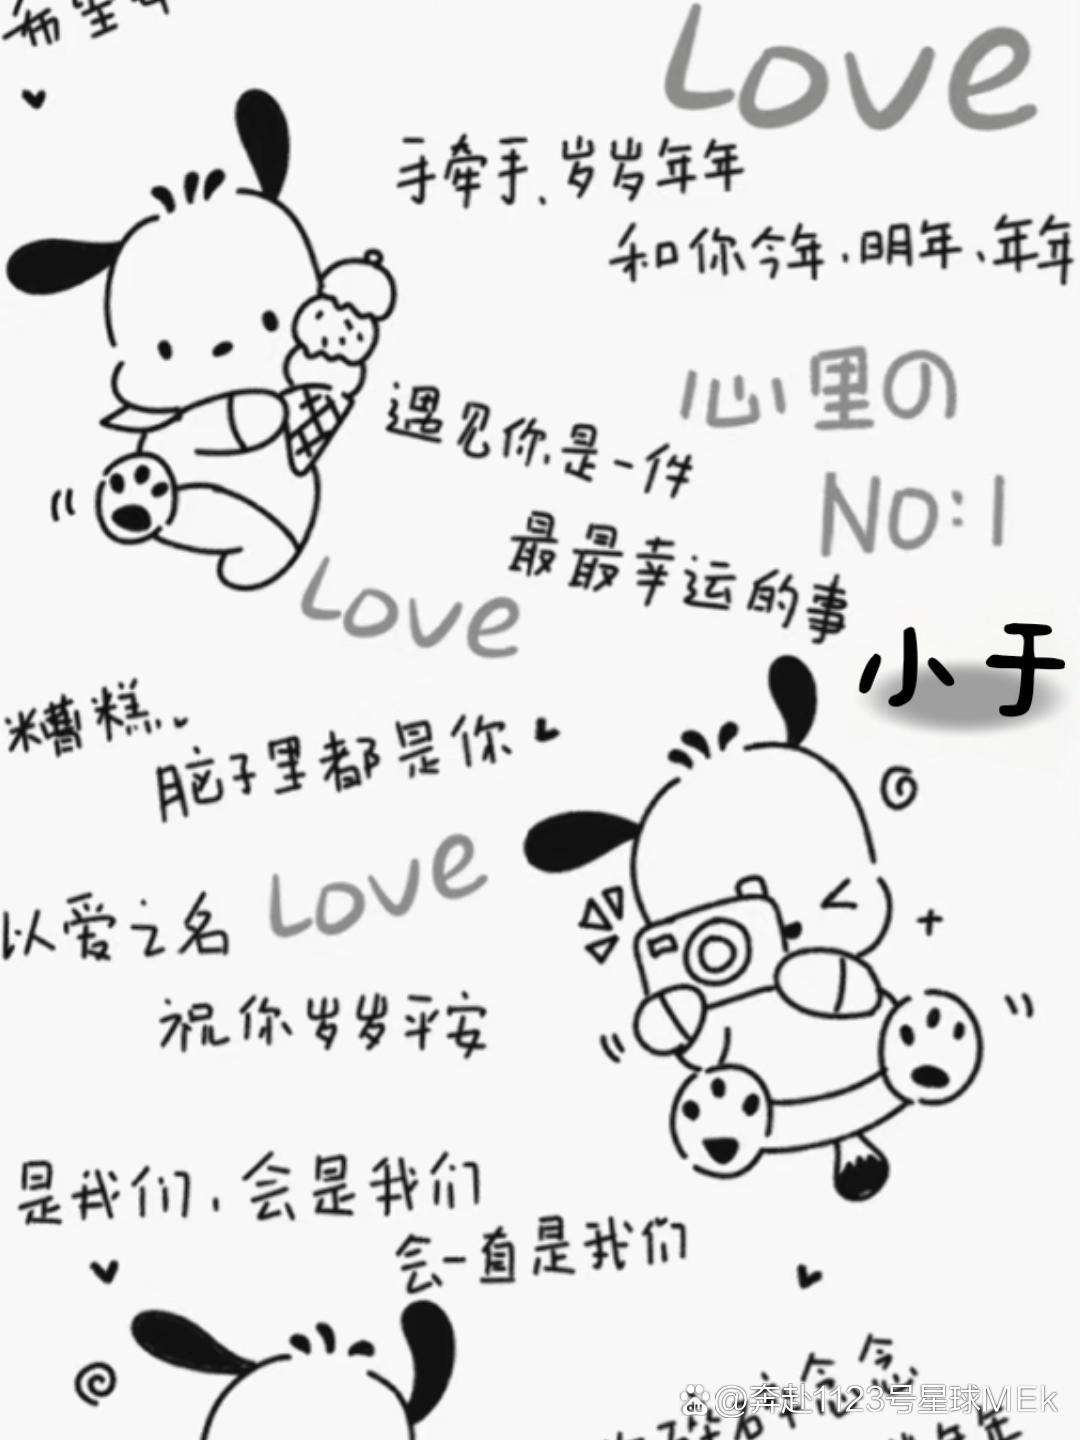 Love
手牵手、岁岁年年
和你今年、明年、年年
心里の
NO:1
遇见你,是一件
最最幸运的事
Love
小于
糟糕,
脑子里都是你
Love
以爱之名
祝你岁岁平安
是我们,会是我们
会一直是我们
念念
@奔赴1123号星球MEk